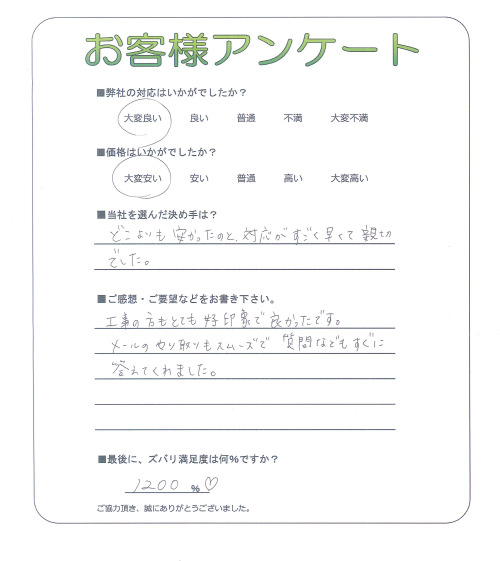 お客様アンケート
■弊社の対応はいかがでしたか？
大変良い 良い 普通 不満 大変不満
■価格はいかがでしたか？
大変安い 安い 普通 高い 大変高い
■当社を選んだ決め手は？
どこよりも安かったのと、対応がすごく早くて親切
でした。
■ご感想・ご要望などをお書き下さい。
工事の方もとても好印象で良かったです。
メールのやり取りもスムーズで 質問などもすぐに
答えてくれました。
■最後に、ズバリ満足度は何%ですか？
1200 %♡
ご協力頂き、誠にありがとうございました。